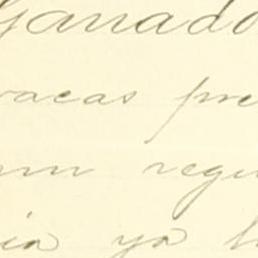 Ganado
vacas pre
um regu
ia ya h